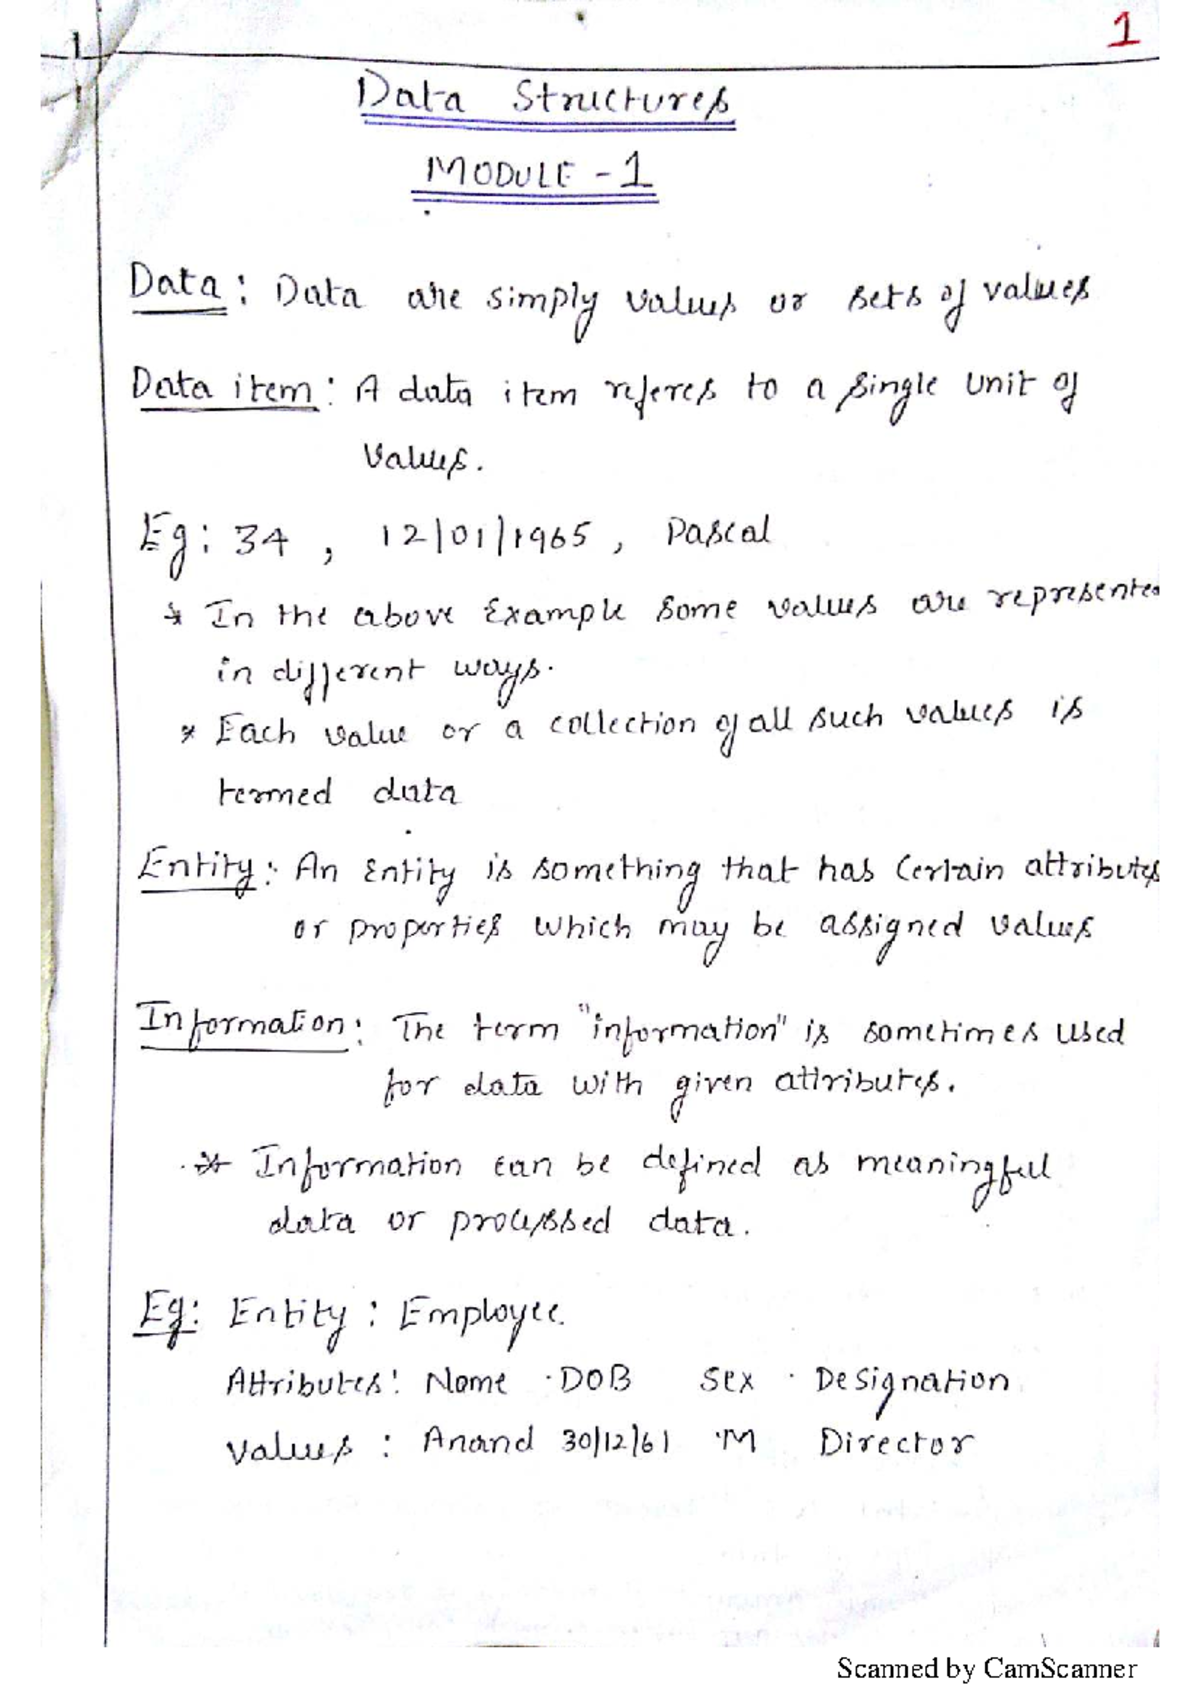 1
Data Structures
MODULE - 1
Data: Data are simply values or sets of values
Data item: A data item referes to a single unit of
values.
Eg: 34 , 12/01/1965 , Pascal
* In the above Example some values are represented
in different ways.
* Each value or a collection of all such values is
termed data
Entity: An Entity is something that has certain attributes
or properties which may be assigned values
Information: The term "information" is sometimes used
for data with given attributes.
* Information can be defined as meaningfull
data or processed data.
Eg: Entity: Employee.
Attributes: Name DOB Sex Designation
Values: Anand 30/12/61 M Director
Scanned by CamScanner